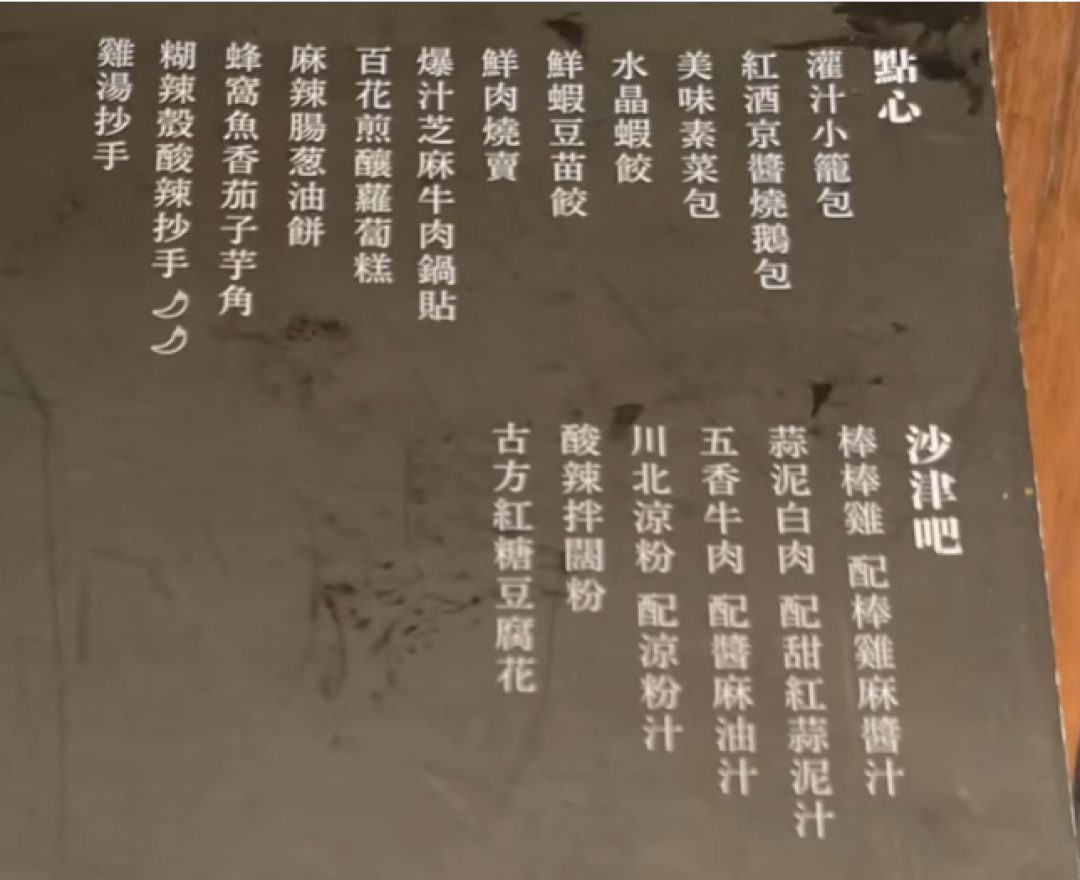 點心
灌汁小籠包
紅酒京醬燒鵝包
美味素菜包
水晶蝦餃
鮮蝦豆苗餃
鮮肉燒賣
爆汁芝麻牛肉鍋貼
百花煎釀蘿蔔糕
麻辣腸葱油餅
蜂窩魚香茄子芋角
糊辣殼酸辣抄手
雞湯抄手
沙津吧
棒棒雞 配棒雞麻醬汁
蒜泥白肉 配甜紅蒜泥汁
五香牛肉 配醬麻油汁
川北涼粉 配涼粉汁
酸辣拌闊粉
古方紅糖豆腐花